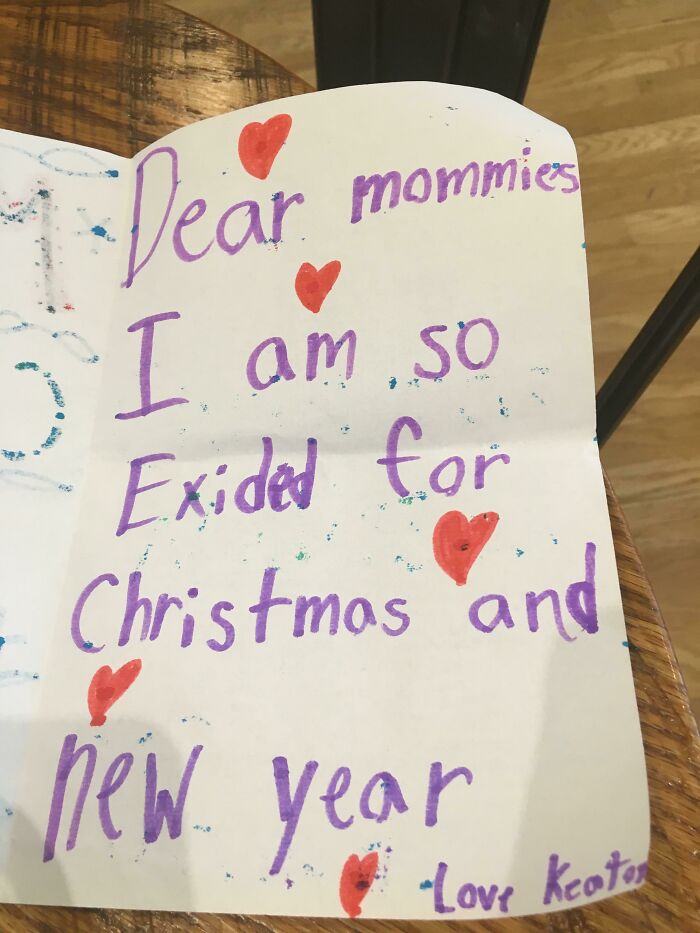 Dear mommies
I am so
Exided for
Christmas and
new year
Love Keaton